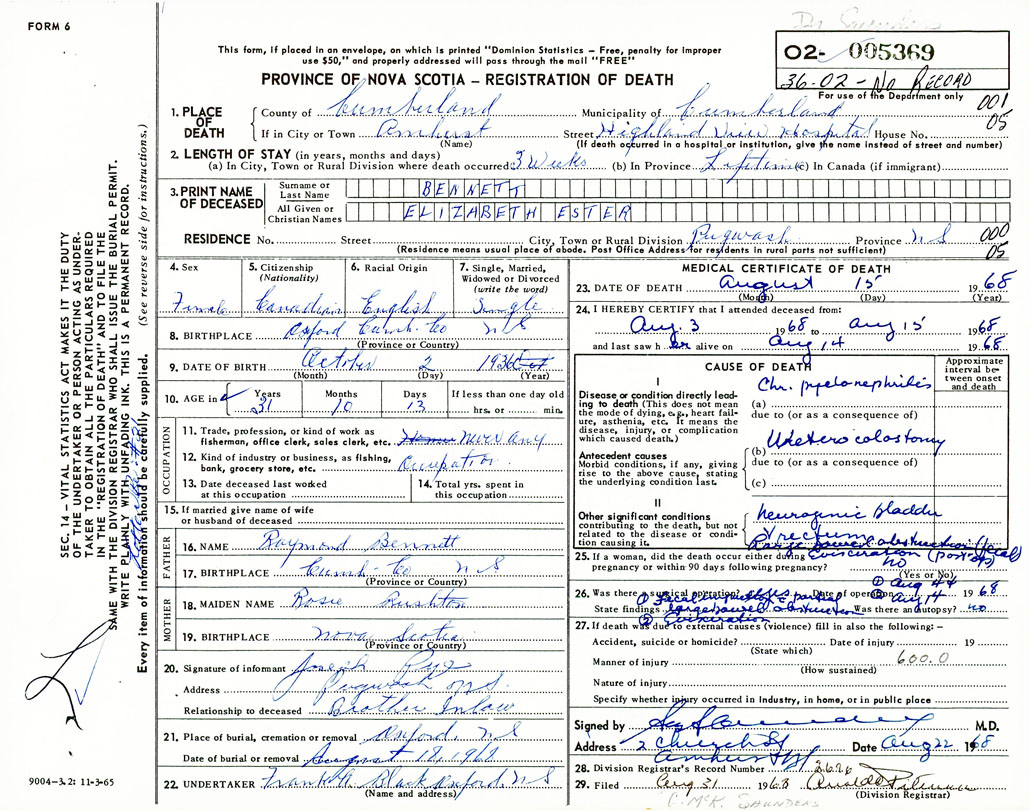 FORM 6
This form, if placed in an envelope, on which is printed "Dominion Statistics – Free, penalty for improper
use $50," and properly addressed will pass through the mail "FREE"
02- 005369
36-02 - No RECORD
For use of the Department only
PROVINCE OF NOVA SCOTIA – REGISTRATION OF DEATH
001
05
1. PLACE OF DEATH
County of Cumberland Municipality of Cumberland
If in City or Town Amherst Street Highland View Hospital House No.
(Name) (If death occurred in a hospital or institution, give the name instead of street and number)
2. LENGTH OF STAY (in years, months and days)
(a) In City, Town or Rural Division where death occurred 3 Weeks (b) In Province Lifetime (c) In Canada (if immigrant)
3. PRINT NAME OF DECEASED
Surname or Last Name BENNETT
All Given or Christian Names ELIZABETH ESTER
RESIDENCE No. Street City, Town or Rural Division Pugwash Province N S
(Residence means usual place of abode. Post Office Address for residents in rural parts not sufficient)
000
05
4. Sex
Female
5. Citizenship (Nationality)
Canadian
6. Racial Origin
English
7. Single, Married, Widowed or Divorced (write the word)
Single
8. BIRTHPLACE Oxford Cumb. Co N S
(Province or Country)
9. DATE OF BIRTH October 2 1936
(Month) (Day) (Year)
10. AGE in Years Months Days If less than one day old
31 10 13 hrs. or min.
OCCUPATION
11. Trade, profession, or kind of work as
fisherman, office clerk, sales clerk, etc. Never any
12. Kind of industry or business, as fishing,
bank, grocery store, etc. Occupation
13. Date deceased last worked
at this occupation
14. Total yrs. spent in
this occupation
15. If married give name of wife
or husband of deceased
FATHER
16. NAME Raymond Bennett
17. BIRTHPLACE Cumb. Co N S
(Province or Country)
MOTHER
18. MAIDEN NAME Rosie Rushton
19. BIRTHPLACE Nova Scotia
(Province or Country)
20. Signature of informant Joseph
Address Pugwash N.S.
Relationship to deceased Brother Inlaw
21. Place of burial, cremation or removal Oxford, N S
Date of burial or removal August 18, 1968
22. UNDERTAKER Frank A. Black Oxford N S
(Name and address)
MEDICAL CERTIFICATE OF DEATH
23. DATE OF DEATH August 15 1968
(Month) (Day) (Year)
24. I HEREBY CERTIFY that I attended deceased from:
Aug. 3 1968 to Aug 15 1968
and last saw h er alive on Aug 14 1968
CAUSE OF DEATH
Approximate interval between onset and death
I
Disease or condition directly leading to death (This does not mean
the mode of dying, e.g., heart failure, asthenia, etc. It means the
disease, injury, or complication
which caused death.)
(a) Chr. pyelonephritis
due to (or as a consequence of)
Antecedent causes
Morbid conditions, if any, giving
rise to the above cause, stating
the underlying condition last.
(b) Ureterocolostomy
due to (or as a consequence of)
(c)
II
Other significant conditions
contributing to the death, but not
related to the disease or condition causing it.
neurogenic bladder
& rectum
large bowel obstruction (fecal)
Evisceration (post-op)
25. If a woman, did the death occur either during
pregnancy or within 90 days following pregnancy? no
(Yes or No)
26. Was there a surgical operation? Date of operation 1968
Aug 14
State findings Was there an autopsy? no
large bowel obstruction
② Evisceration
27. If death was due to external causes (violence) fill in also the following:–
Accident, suicide or homicide? Date of injury 19
(State which)
Manner of injury 600.0
(How sustained)
Nature of injury
Specify whether injury occurred in industry, in home, or in public place
Signed by M.D.
Address 2 Church St Date Aug 22 1968
Amherst NS
28. Division Registrar's Record Number 3626
29. Filed Aug 31 1968
(Division Registrar)
SAUNDERS
SEC. 14 – VITAL STATISTICS ACT MAKES IT THE DUTY
OF THE UNDERTAKER OR PERSON ACTING AS UNDER-
TAKER TO OBTAIN ALL THE PARTICULARS REQUIRED
IN THE "REGISTRATION OF DEATH" AND TO FILE THE
SAME WITH THE DIVISION REGISTRAR WHO SHALL ISSUE THE BURIAL PERMIT.
WRITE PLAINLY WITH UNFADING INK. THIS IS A PERMANENT RECORD.
Every item of information should be carefully supplied. (See reverse side for instructions.)
9004-3.2: 11-3-65